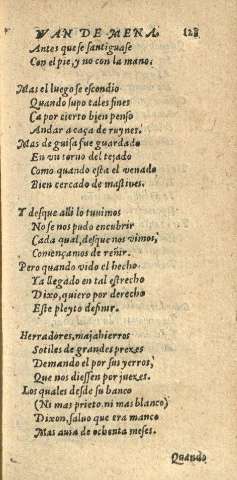 IVAN DE MENA. 128
Antes que se santiguase
Con el pie, y no con la mano.
Mas el luego se escondio
Quando supo tales fines
Ca por cierto bien penso
Andar a caça de ruynes.
Mas de guisa fue guardado
En vn torno del tejado
Como quando esta el venado
Bien cercado de mastines.
Y desque alli lo tuuimos
No se nos pudo encubrir
Cada qual, desque nos vimos,
Començamos de reñir.
Pero quando vido el hecho
Ya llegado en tal estrecho
Dixo, quiero por derecho
Este pleyto definir.
Herradores, majahierros
Sotiles de grandes prezes
Demando el por sus yerros,
Que nos diessen por juezes.
Los quales desde su banco
(Ni mas prieto, ni mas blanco)
Dixon, saluo que era manco
Mas auia de ochenta meses.
Quando